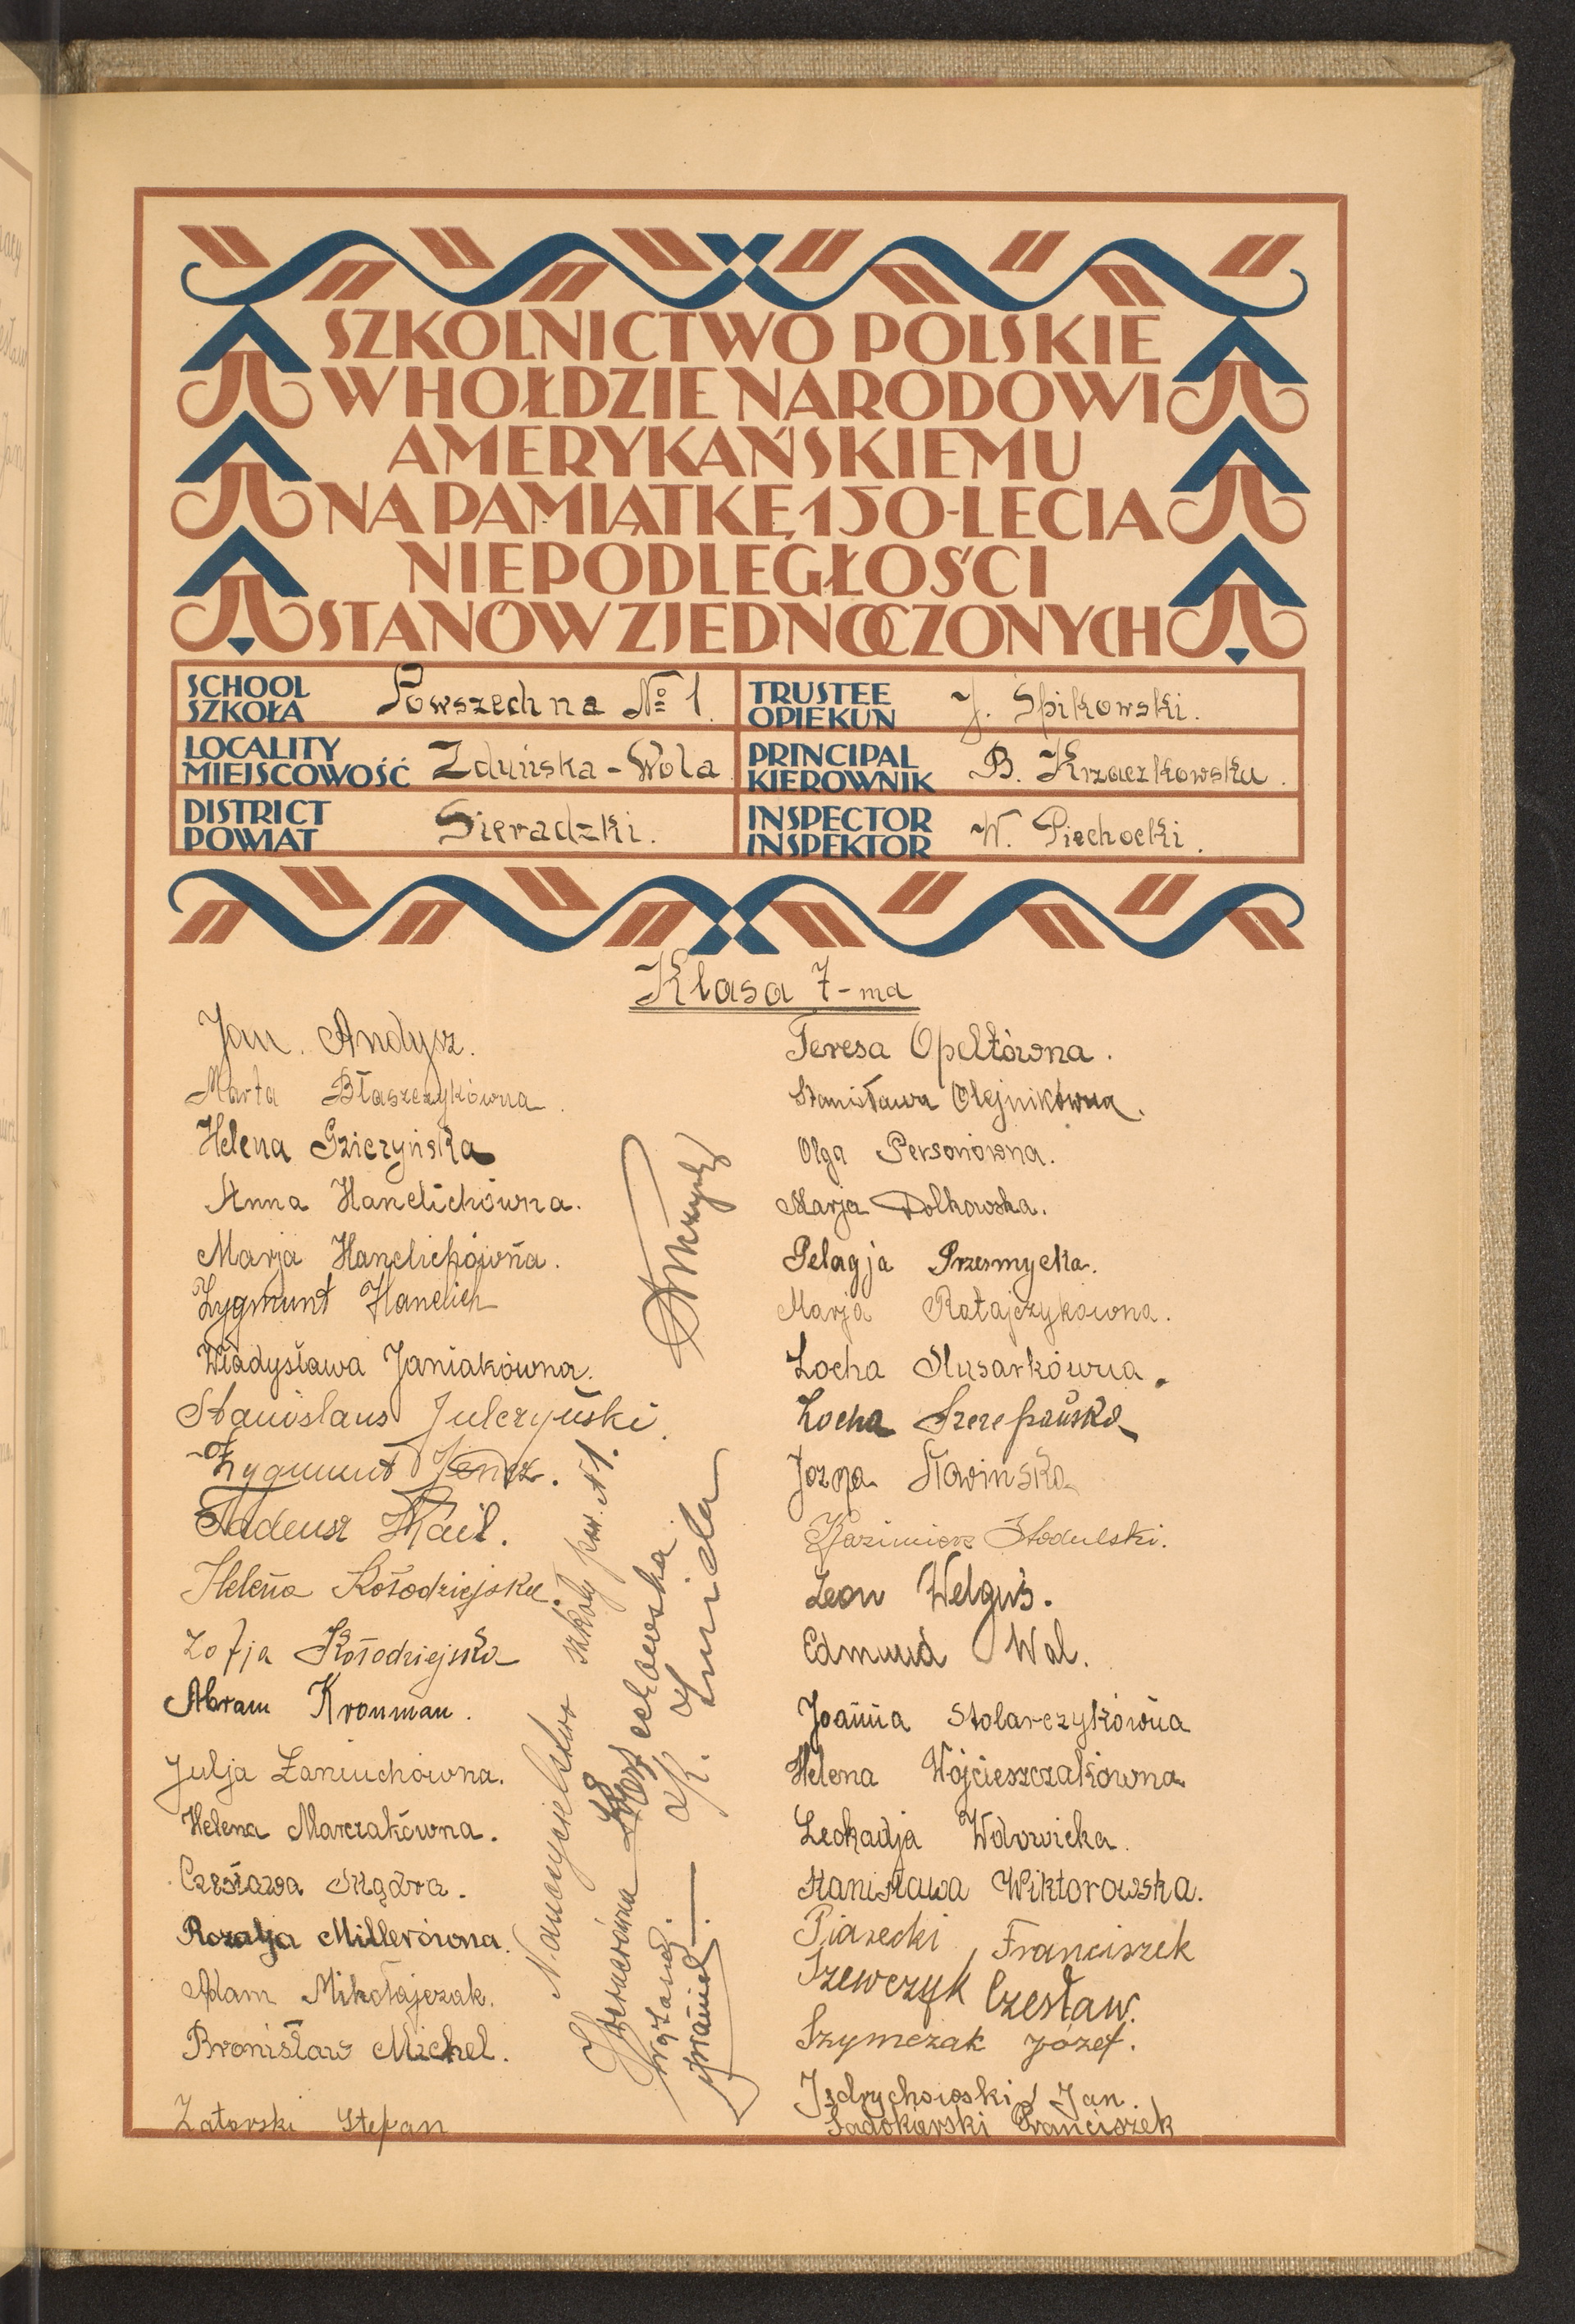 SZKOLNICTWO POLSKIE
W HOŁDZIE NARODOWI
AMERYKAŃSKIEMU
NA PAMIĄTKĘ 150-LECIA
NIEPODLEGŁOŚCI
STANÓW ZJEDNOCZONYCH
SCHOOL
SZKOŁA
Powszechna № 1.
TRUSTEE
OPIEKUN
J. Spikowski.
LOCALITY
MIEJSCOWOŚĆ
Zduńska-Wola
PRINCIPAL
KIEROWNIK
B. Krzaczkowska.
DISTRICT
POWIAT
Sieradzki.
INSPECTOR
INSPEKTOR
W. Piechocki.
Klasa 7-ma
Jan. Andysz.
Marta Błaszczykówna.
Helena Gziczyńska
Anna Hanelichówna.
Marja Hanelichówna.
Zygmunt Hanelich
Władysława Janiakówna.
Stanislaus Julczyński.
Zygmunt Jencz.
Tadeusz Kail.
Helena Kołodziejska.
Zofja Kołodziejska
Abram Kronman.
Julja Łaniuchówna.
Helena Marczakówna.
Czesława Mądra.
Rozalja Millerówna.
Adam Mikołajczak.
Bronisław Michel.
Zatorski Stefan
Nauczycielstwo szkoły pow. N 1.
K. Żmida
Teresa Opeltówna.
Stanisława Olejnikówna.
Olga Personówna.
Marja Polkowska.
Pelagja Przesmycka.
Marja Ratajczykowna.
Zocha Ślusarkówna.
Zocha Szczepańska
Józefa Sławińska
Kazimierz Stodulski.
Leon Welguś.
Edmund Wal.
Joanna Stolarczykówna
Helena Wojcieszczakówna
Leokadja Wdowicka.
Stanisława Wiktorowska.
Piasecki, Franciszek
Szewczyk Czesław.
Szymczak Józef.
Jędrychowski Jan.
Sadokierski Franciszek